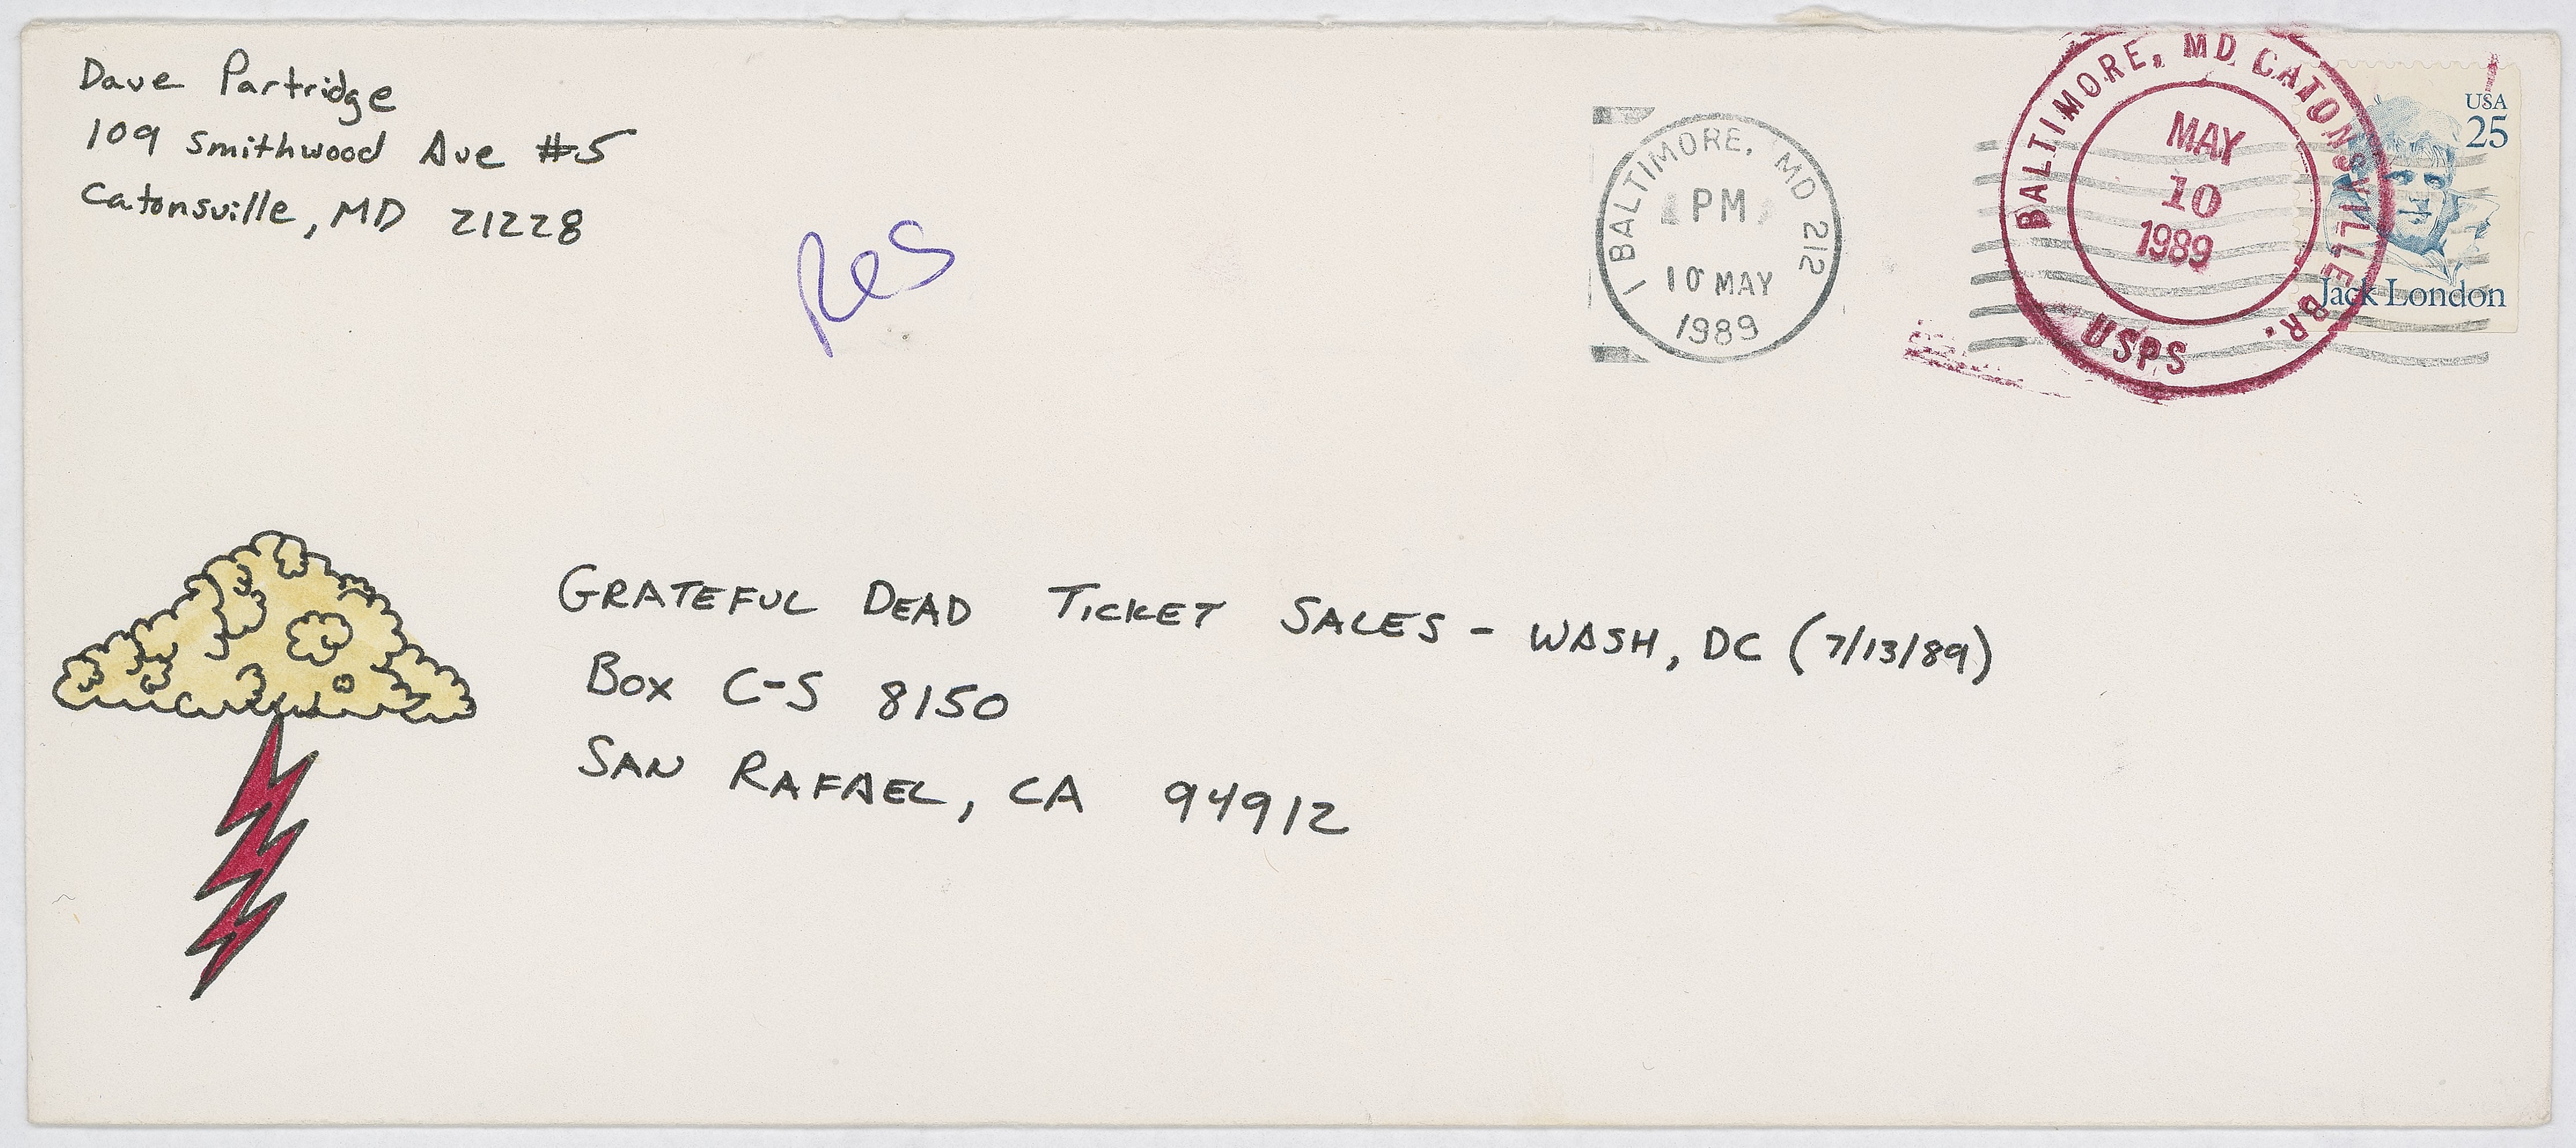 Dave Partridge
109 Smithwood Ave #5
Catonsville, MD 21228
Res
BALTIMORE, MD 212
PM
10 MAY
1989
BALTIMORE, MD CATONSVILLE BR.
MAY
10
1989
USPS
USA
25
Jack London
GRATEFUL DEAD TICKET SALES - WASH, DC (7/13/89)
BOX C-S 8150
SAN RAFAEL, CA 94912